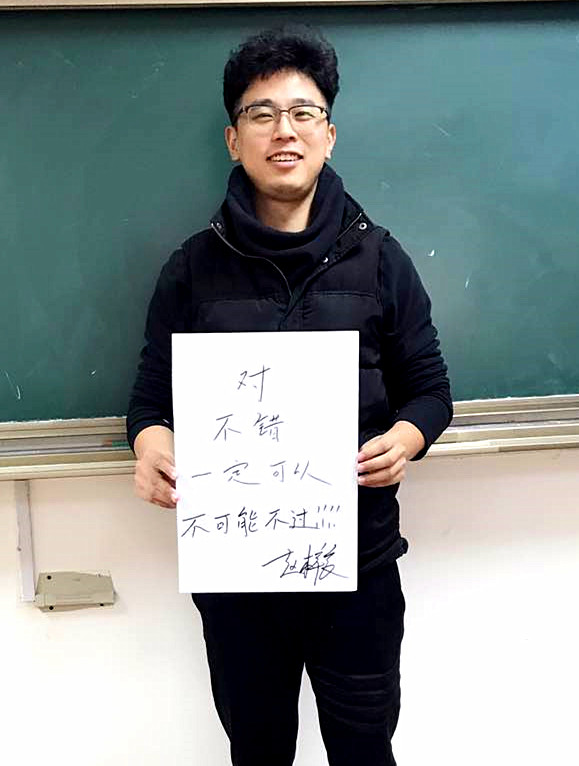 对
不错
一定可以
不可能不过!!!!